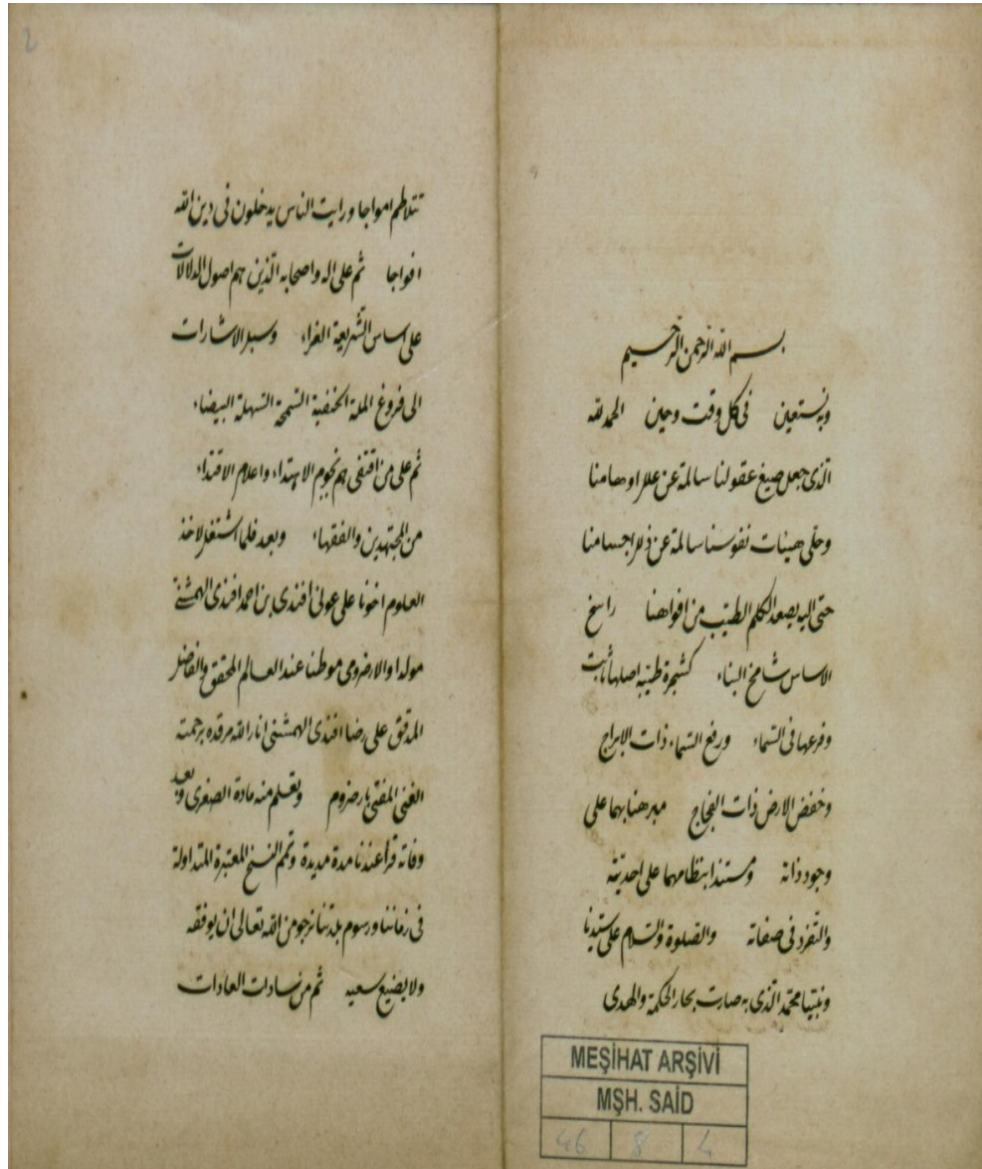 بسم الله الرحمن الرحيم
وبه نستعين في كل وقت وحين الحمد لله
الذى جعل صيغ عقولنا سالمة عن علل اوهامنا
وحلى هيئات نفوسنا سالمة عن ذلل اجسامنا
حتى اليه يصعد الكلم الطيب من افواهنا راسخ
الاساس شامخ البناء كشجرة طيبة اصلها ثابت
وفرعها فى السماء ورفع السماء ذات الابراج
وخفض الارض ذات الفجاج مبرهنا بهما على
وجود ذاته ومستندا بنظامهما على احديته
والتفرد فى صفاته والصلوة والسلام على سيدنا
ونبينا محمد الذى به صارت بحار الحكمة والهدى
MEŞİHAT ARŞİVİ
MŞH. SAİD
46 8 4
2
تتلاطم امواجا ورايت الناس يدخلون فى دين الله
افواجا ثم على اله واصحابه الذين هم اصول الدلالات
على اساس الشريعة الغراء وسبل الاشارات
الى فروغ الملة الحنفية السمحة السهلة البيضاء
ثم على من اقتفى هم نجوم الاهتداء واعلام الاقتداء
من المجتهدين والفقهاء وبعد فلما اشتغل لاخذ
العلوم اخونا على عونى افندى بن احمد افندى الهمشنى
مولدا والارضرومى موطنا عند العالم المحقق والفاضل
المدقق على رضا افندى الهمشنى انار الله مرقده برحمته
الغنى المفتى بارضروم وتعلم منه مادة الصغرى وبعد
وفاته قرأ عندنا مدة مديدة وتمم النسخ المعتبرة المتداولة
فى زماننا ورسوم بلدتنا نرجو من الله تعالى ان يوفقه
ولا يضيع سعيه ثم من سادات العادات